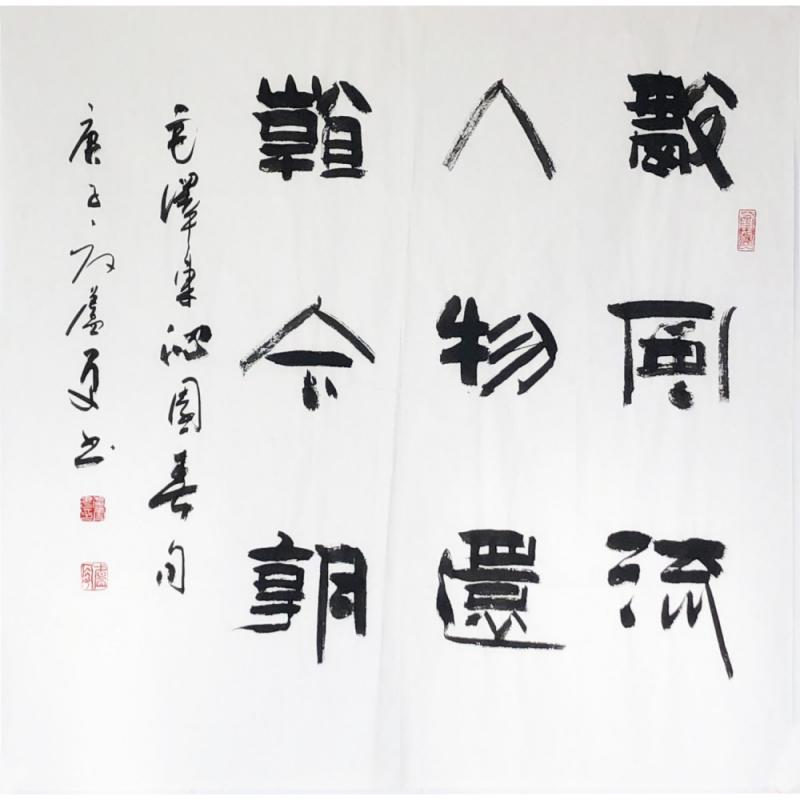 數風流
人物還
看今朝
毛澤東沁園春句
庚子盧书